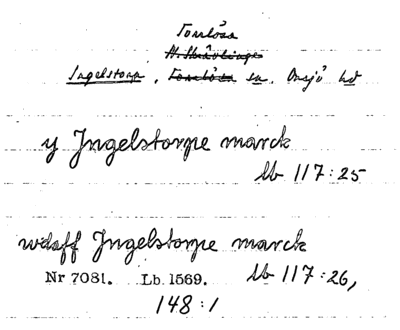 Torrlösa
N. Skrävlinge
Ingelstorp, Torrlösa sn. Onsjö hd
y Jngelstorpe marck
lb 117:25
wdaff Jngelstorpe marck
Nr 7081. Lb. 1569. lb 117:26,
148:1